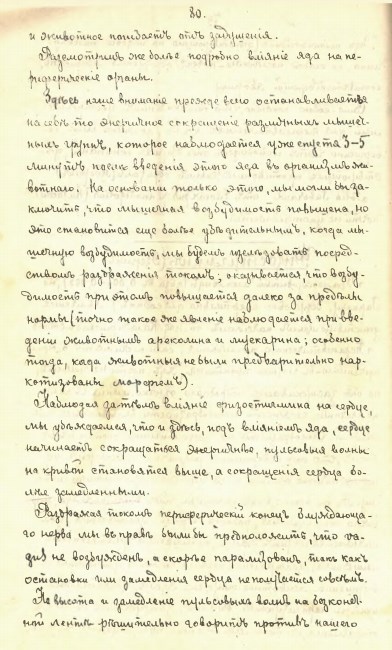 80.
и животное погибаетъ отъ задушенія.
Разсмотримъ же болѣе подробно вліяніе яда на пе-
риферическіе органы.
Здѣсь наше вниманіе прежде всего останавливаетъ
на себѣ то энергичное сокращеніе различныхъ мышеч-
ныхъ группъ, которое наблюдается уже спустя 3-5
минутъ послѣ введенія этого яда въ организмъ жи-
вотнаго. На основаніи только этого, мы могли бы за-
ключить, что мышечная возбудимость повышена, но
это становится еще болѣе убѣдительнымъ, когда мы-
шечную возбудимость мы будемъ изслѣдовать посред-
ствомъ раздраженія токомъ; оказывается, что возбу-
димость при этомъ повышается далеко за предѣлы
нормы (точно такое же явленіе наблюдается при вве-
деніи животнымъ ареколина и мускарина; особенно
тогда, когда животныя не были предварительно нар-
котизованы морфіемъ).
Наблюдая затѣмъ вліяніе физостигмина на сердце,
мы убѣждаемся, что и здѣсь, подъ вліяніемъ яда, сердце
начинаетъ сокращаться энергичнѣе, пульсовыя волны
на кривой становятся выше, а сокращенія сердца бо-
лѣе замедленными.
Раздражая токомъ периферическій конецъ блуждающа-
го нерва мы въ правѣ были бы предположить, что va-
gus не возбужденъ, а скорѣе парализованъ, такъ какъ
остановки или замедленія сердца не получается совсѣмъ.
Но высота и замедленіе пульсовыхъ волнъ на безконеч-
ной лентѣ рѣшительно говоритъ противъ нашего